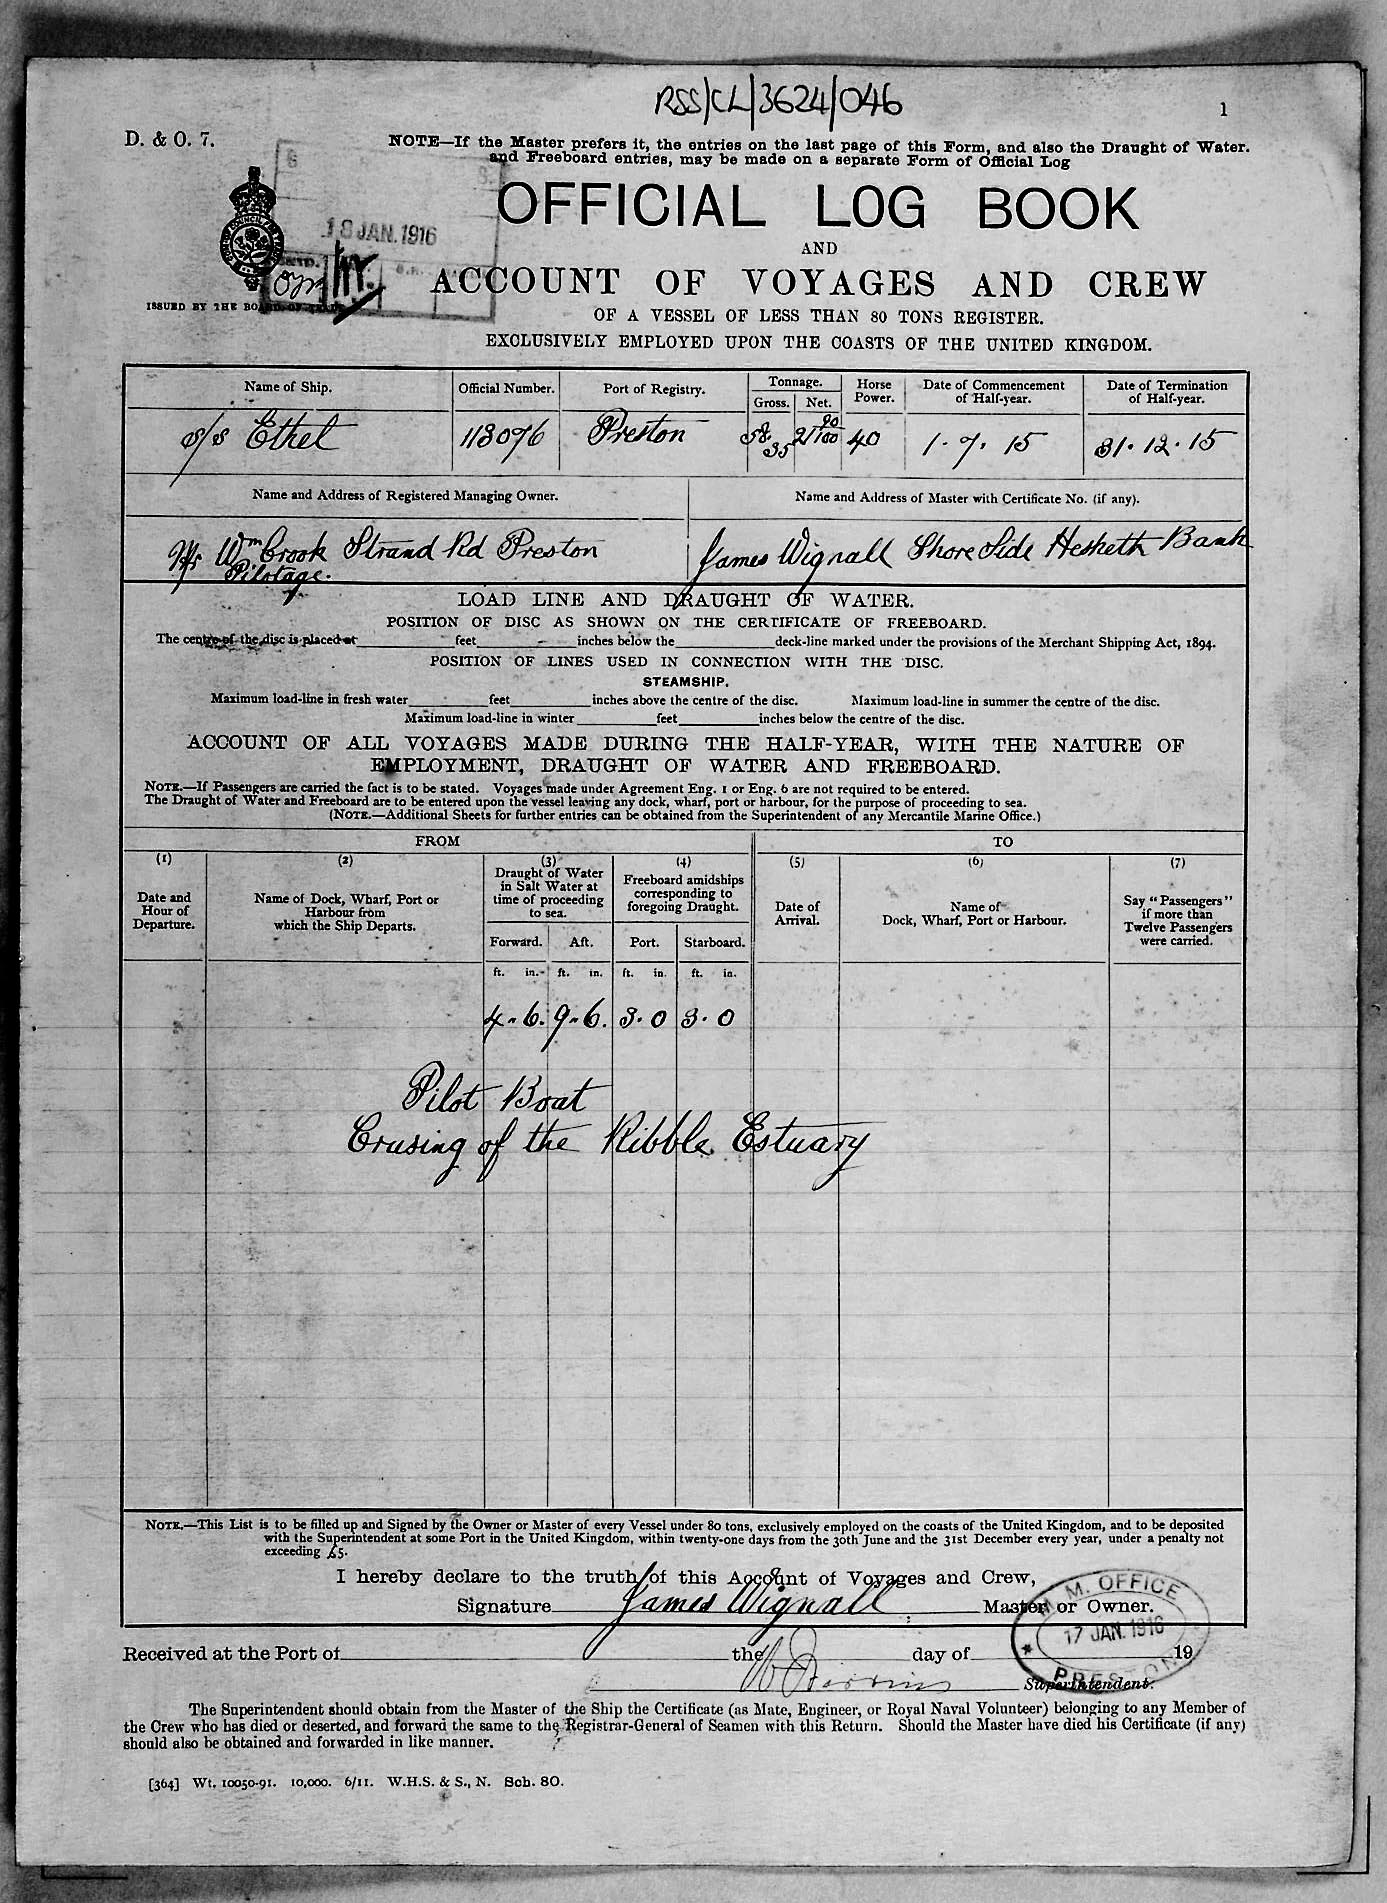 RSS/CL/3624/046
1
D. & O. 7.
NOTE—If the Master prefers it, the entries on the last page of this Form, and also the Draught of Water.
and Freeboard entries, may be made on a separate Form of Official Log
OFFICIAL LOG BOOK
18 JAN. 1916
AND
ACCOUNT OF VOYAGES AND CREW
ISSUED BY THE BOARD OF TRADE
OF A VESSEL OF LESS THAN 80 TONS REGISTER.
EXCLUSIVELY EMPLOYED UPON THE COASTS OF THE UNITED KINGDOM.
Name of Ship. Official Number. Port of Registry. Tonnage. Horse Power. Date of Commencement of Half-year. Date of Termination of Half-year.
Gross. Net.
s/s Ethel 113076 Preston 58.35 21 90/100 40 1.7.15 31.12.15
Name and Address of Registered Managing Owner. Name and Address of Master with Certificate No. (if any).
Mr Wm Crook Strand Rd Preston James Wignall Shore Side Hesketh Bank
Pilotage.
LOAD LINE AND DRAUGHT OF WATER.
POSITION OF DISC AS SHOWN ON THE CERTIFICATE OF FREEBOARD.
The centre of the disc is placed at feet inches below the deck-line marked under the provisions of the Merchant Shipping Act, 1894.
POSITION OF LINES USED IN CONNECTION WITH THE DISC.
STEAMSHIP.
Maximum load-line in fresh water feet inches above the centre of the disc. Maximum load-line in summer the centre of the disc.
Maximum load-line in winter feet inches below the centre of the disc.
ACCOUNT OF ALL VOYAGES MADE DURING THE HALF-YEAR, WITH THE NATURE OF
EMPLOYMENT, DRAUGHT OF WATER AND FREEBOARD.
NOTE.—If Passengers are carried the fact is to be stated. Voyages made under Agreement Eng. 1 or Eng. 6 are not required to be entered.
The Draught of Water and Freeboard are to be entered upon the vessel leaving any dock, wharf, port or harbour, for the purpose of proceeding to sea.
(NOTE.—Additional Sheets for further entries can be obtained from the Superintendent of any Mercantile Marine Office.)
FROM TO
(1) (2) (3) (4) (5) (6) (7)
Date and Hour of Departure.
Name of Dock, Wharf, Port or Harbour from which the Ship Departs.
Draught of Water in Salt Water at time of proceeding to sea.
Freeboard amidships corresponding to foregoing Draught.
Date of Arrival.
Name of Dock, Wharf, Port or Harbour.
Say "Passengers" if more than Twelve Passengers were carried.
Forward. Aft. Port. Starboard.
ft. in. ft. in. ft. in. ft. in.
4-6. 9-6. 3.0 3.0
Pilot Boat
Crusing of the Ribble Estuary
NOTE.—This List is to be filled up and Signed by the Owner or Master of every Vessel under 80 tons, exclusively employed on the coasts of the United Kingdom, and to be deposited
with the Superintendent at some Port in the United Kingdom, within twenty-one days from the 30th June and the 31st December every year, under a penalty not
exceeding £5.
I hereby declare to the truth of this Account of Voyages and Crew,
Signature James Wignall Master or Owner.
M. M. OFFICE
17 JAN. 1916
PRESTON
Received at the Port of the day of 19
Superintendent.
The Superintendent should obtain from the Master of the Ship the Certificate (as Mate, Engineer, or Royal Naval Volunteer) belonging to any Member of
the Crew who has died or deserted, and forward the same to the Registrar-General of Seamen with this Return. Should the Master have died his Certificate (if any)
should also be obtained and forwarded in like manner.
[364] Wt. 10050-91. 10,000. 6/11. W.H.S. & S., N. Sch. 80.